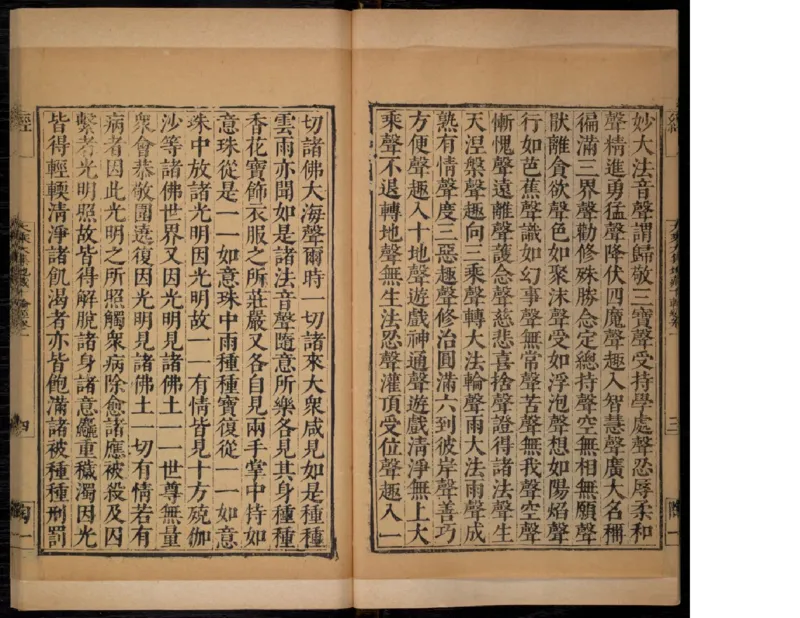 妙大法音聲謂歸敬三寶聲受持學處聲忍辱柔和
聲精進勇猛聲降伏四魔聲趣入智慧聲廣大名稱
徧滿三界聲勸修殊勝念定總持聲空無相無願聲
猒離貪欲聲色如聚沫聲受如浮泡聲想如陽焰聲
行如芭蕉聲識如幻事聲無常聲苦聲無我聲空聲
慚愧聲遠離聲護念聲慈悲喜捨聲證得諸法聲生
天涅槃聲趣向三乘聲轉大法輪聲雨大法雨聲成
熟有情聲度三惡趣聲修治圓滿六到彼岸聲善巧
方便聲趣入十地聲遊戲神通聲遊戲清淨無上大
乘聲不退轉地聲無生法忍聲灌頂受位聲趣入一
三
陶一
切諸佛大海聲爾時一切諸來大衆咸見如是種種
雲雨亦聞如是諸法音聲隨意所樂各見其身種種
香花寶飾衣服之所莊嚴又各自見兩手掌中持如
意珠從是一一如意珠中雨種種寶復從一一如意
珠中放諸光明因光明故一一有情皆見十方殑伽
沙等諸佛世界又因光明見諸佛土一一世尊無量
衆會恭敬圍遶復因光明見諸佛土一切有情若有
病者因此光明之所照觸衆病除愈諸應被殺及囚
繫者光明照故皆得解脫諸身語意麤重穢濁因光
皆得輕輭清淨諸飢渴者亦皆飽滿諸被種種刑罰
經
四
陶一